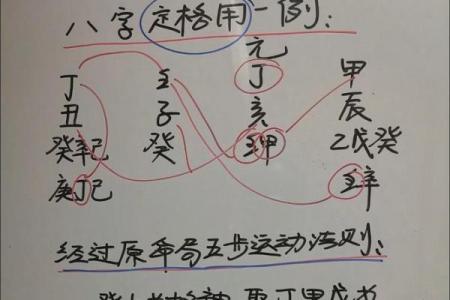 八字定格用一例：
元
丁 壬 丁 甲
丑 子 亥 辰
癸辛己 癸 壬甲 乙戊癸
庚丁己 壬辛
经过原命局五步运动法则：
癸 取丁甲戊